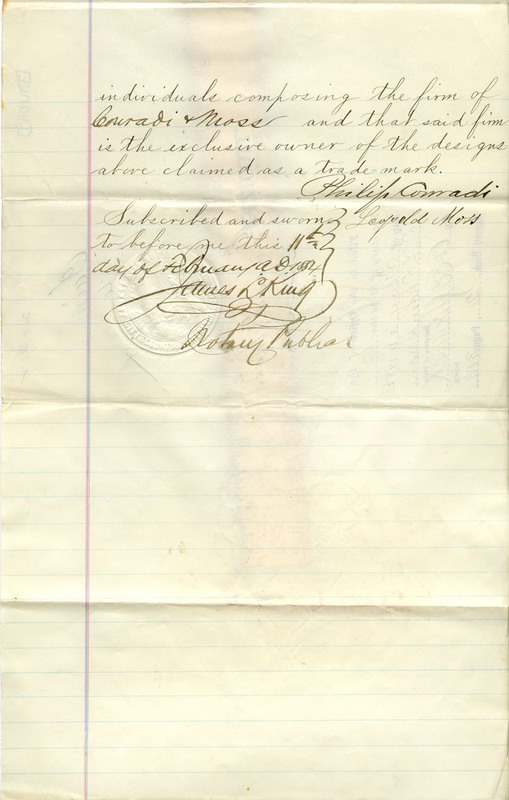 individuals composing the firm of
Conradi & Moss and that said firm
is the exclusive owner of the designs
above claimed as a trade mark.
Philip Conradi
Subscribed and sworn Leopold Moss
to before me this 11th
day of February A D
James L King
Notary Public